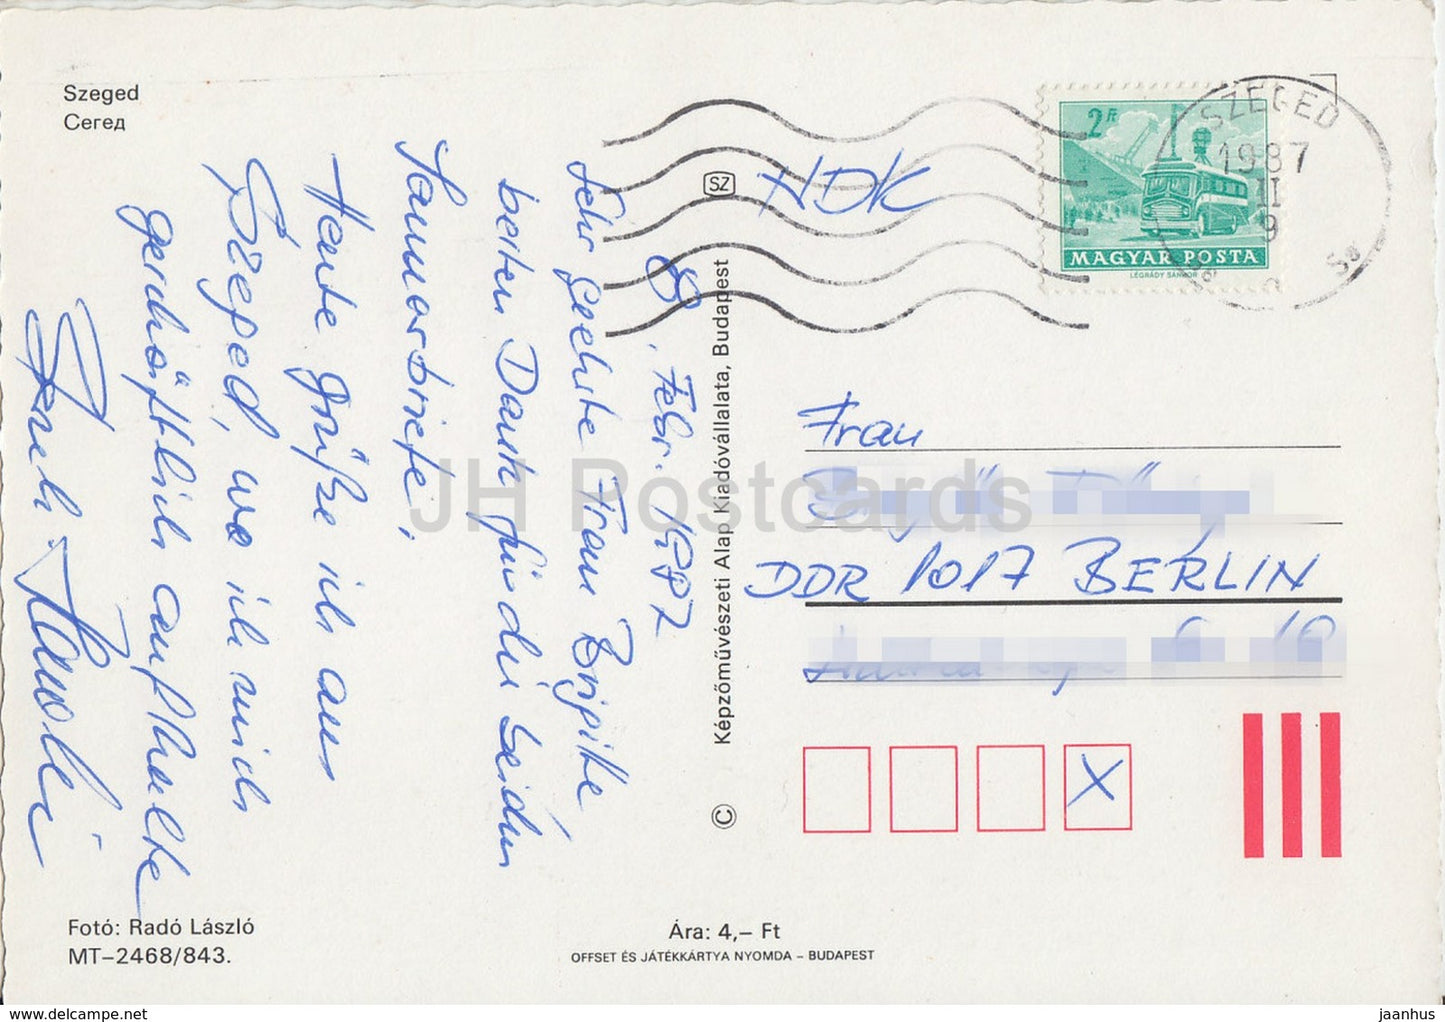 Szeged
Сегед
8. Febr. 1987
Sehr geehrte Frau Brigitte
besten Dank für die beiden
Samosbriefe,
Heute grüße ich aus
Szeged, wo ich mich
geschäftlich aufhalte
Fotó: Radó László
MT–2468/843.
SZ
Képzőművészeti Alap Kiadóvállalata, Budapest
©
Ára: 4,– Ft
OFFSET ÉS JÁTÉKKÁRTYA NYOMDA – BUDAPEST
NDK
2 Ft
MAGYAR POSTA
LÉGRÁDY SÁNDOR
SZEGED
1987
II
9
Frau
DDR 1017 BERLIN
X
JH Postcards
www.hippostcard.com
jaanhus